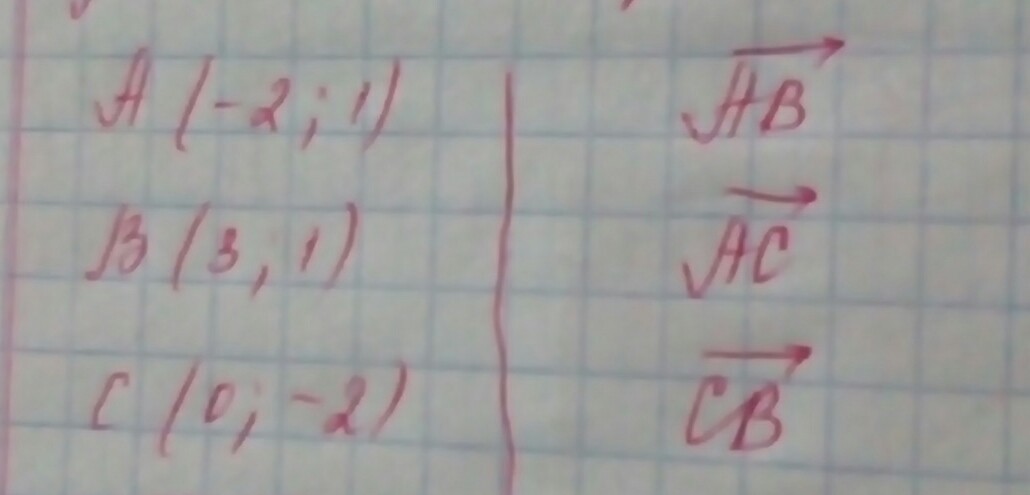 A (-2; 1)
B (3; 1)
C (0; -2)
AB
AC
CB